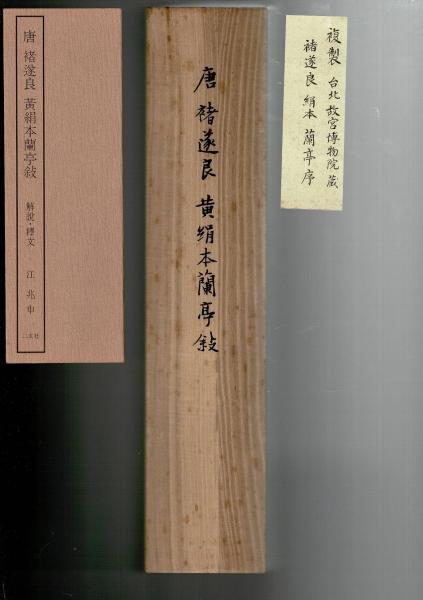 複製 台北故宮博物院蔵
褚遂良 絹本 蘭亭序
唐 褚遂良 黄絹本蘭亭敍
唐 褚遂良 黃絹本蘭亭敍
解說・釋文 江兆申
二玄社